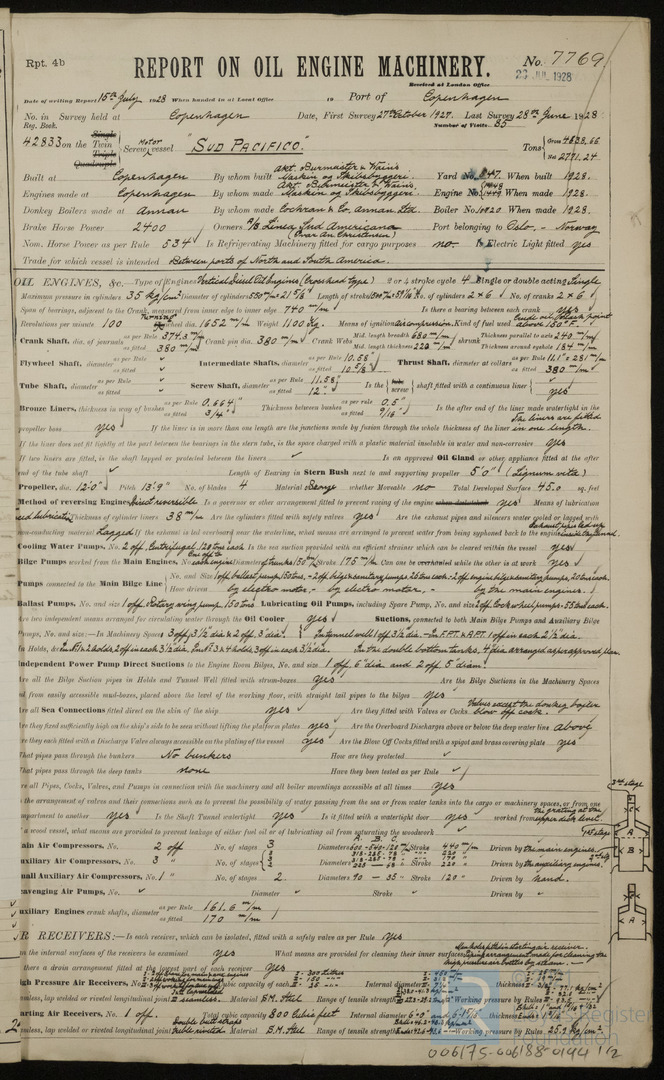 Rpt. 4b
REPORT ON OIL ENGINE MACHINERY.
No. 7769.
Received at London Office 23 JUL 1928
Date of writing Report 15th July 1928 When handed in at Local Office 19 Port of Copenhagen
No. in Survey held at Copenhagen Date, First Survey 27th October 1927. Last Survey 28th June 1928
Reg. Book. Number of Visits 85
42833 on the Single Twin Triple Quadruple Screw Motor vessel "SUD PACIFICO." Tons Gross 4638.66 Net 2791.24
Built at Copenhagen By whom built Akt. Burmeister & Wain's Maskin og Skibsbyggeri. Yard No. 347. When built 1928.
Engines made at Copenhagen By whom made Akt. Burmeister & Wain's Maskin og Skibsbyggeri. Engine No. When made 1928.
Donkey Boilers made at Annan By whom made Cochran & Co. Annan Ltd. Boiler No. When made 1928.
Brake Horse Power 2400 Owners A/S Linea Sud Americana (Ivar An Christensen) Port belonging to Oslo, - Norway
Nom. Horse Power as per Rule 534 Is Refrigerating Machinery fitted for cargo purposes no. Is Electric Light fitted yes
Trade for which vessel is intended Between ports of North and South America.
OIL ENGINES, &c. Type of Engines Vertical Diesel Oil Engines (Crosshead type) 2 or 4 stroke cycle 4 Single or double acting Single
Maximum pressure in cylinders 35 kg/cm² Diameter of cylinders 550 m/m 21 5/8" Length of stroke No. of cylinders 2 x 6 No. of cranks 2 x 6
Span of bearings, adjacent to the Crank, measured from inner edge to inner edge 740 m/m Is there a bearing between each crank yes
Revolutions per minute 100 Flywheel dia. 1652 m/m Weight 1100 kg. Means of ignition air compression. Kind of fuel used Crude oil, flash point above 150° F.
Crank Shaft, dia. of journals as per Rule 374.3 m/m as fitted 380 m/m Crank pin dia. 380 m/m Crank Webs Mid. length breadth 680 m/m Mid. length thickness 222 m/m shrunk Thickness parallel to axis 240 m/m Thickness around eyehole 184 m/m
Flywheel Shaft, diameter as per Rule as fitted Intermediate Shafts, diameter as per Rule 10.58" as fitted 10 5/8" Thrust Shaft, diameter at collars as per Rule 11.1" = 281 m/m as fitted 380 m/m
Tube Shaft, diameter as per Rule as fitted Screw Shaft, diameter as per Rule 11.58" as fitted 12" Is the tube screw shaft fitted with a continuous liner yes
Bronze Liners, thickness in way of bushes as per Rule 0.664" as fitted 3/4" Thickness between bushes as per rule 0.5" as fitted 9/16" Is the after end of the liner made watertight in the
propeller boss yes If the liner is in more than one length are the junctions made by fusion through the whole thickness of the liner The liners are fitted in one length.
If the liner does not fit tightly at the part between the bearings in the stern tube, is the space charged with a plastic material insoluble in water and non-corrosive yes
If two liners are fitted, is the shaft lapped or protected between the liners Is an approved Oil Gland or other appliance fitted at the after
end of the tube shaft Length of Bearing in Stern Bush next to and supporting propeller 5'0" (Lignum vitæ)
Propeller, dia. 12'0" Pitch 13'9" No. of blades 4 Material Bronze whether Moveable no Total Developed Surface 45.0 sq. feet
Method of reversing Engines Direct reversible Is a governor or other arrangement fitted to prevent racing of the engine when declutched yes Means of lubrication
Forced lubrication Thickness of cylinder liners 38 m/m Are the cylinders fitted with safety valves yes Are the exhaust pipes and silencers water cooled or lagged with
non-conducting material Lagged If the exhaust is led overboard near the waterline, what means are arranged to prevent water from being syphoned back to the engine Exhaust pipes led up inside the funnel.
Cooling Water Pumps, No. 2 off, Centrifugal, 120 tons each Is the sea suction provided with an efficient strainer which can be cleared within the vessel yes
Bilge Pumps worked from the Main Engines, No. One off to each engine Diameter of trunks 150 m/m Stroke 175 m/m Can one be overhauled while the other is at work yes
Pumps connected to the Main Bilge Line No. and Size 1 off ballast pump, 150 tons, - 2 off bilge & sanitary pumps, 25 tons each - 2 off engine bilge & sanitary pumps, 20 tons each.
How driven by electro motor, - by electro motor, - by the main engines.
Ballast Pumps, No. and size 1 off, Rotary wing pump, 150 tons Lubricating Oil Pumps, including Spare Pump, No. and size 2 off, Cock wheel pumps = 55 tons each.
Are two independent means arranged for circulating water through the Oil Cooler yes Suctions, connected to both Main Bilge Pumps and Auxiliary Bilge
Pumps, No. and size:—In Machinery Spaces 3 off, 3 1/2" dia & 2 off, 3" dia. In tunnel well 1 off 3 1/2 dia. - In F.P.T. & A.P.T. 1 off in each 2 1/2 dia.
In Holds, &c. In Nos 1 & 2 holds, 2 off in each 3 1/2 dia. In Nos 3 & 4 holds 3 off in each 3 1/2 dia. In the double bottom tanks, 4" dia arranged as per approved plan.
Independent Power Pump Direct Suctions to the Engine Room Bilges, No. and size 1 off 6" dia and 2 off 5" diam.
Are all the Bilge Suction pipes in Holds and Tunnel Well fitted with strum-boxes yes Are the Bilge Suctions in the Machinery Spaces
led from easily accessible mud-boxes, placed above the level of the working floor, with straight tail pipes to the bilges yes
Are all Sea Connections fitted direct on the skin of the ship yes Are they fitted with Valves or Cocks Valves except the donkey boiler blow off cock.
Are they fixed sufficiently high on the ship's side to be seen without lifting the platform plates yes Are the Overboard Discharges above or below the deep water line above
Are they each fitted with a Discharge Valve always accessible on the plating of the vessel yes Are the Blow Off Cocks fitted with a spigot and brass covering plate yes
What pipes pass through the bunkers No bunkers How are they protected
What pipes pass through the deep tanks none Have they been tested as per Rule
Are all Pipes, Cocks, Valves, and Pumps in connection with the machinery and all boiler mountings accessible at all times yes
Is the arrangement of valves and their connections such as to prevent the possibility of water passing from the sea or from water tanks into the cargo or machinery spaces, or from one
compartment to another yes Is the Shaft Tunnel watertight yes Is it fitted with a watertight door yes worked from the grating at the upper deck level.
If a wood vessel, what means are provided to prevent leakage either of fuel oil or of lubricating oil from saturating the woodwork
Main Air Compressors, No. 2 off No. of stages 3 Diameters 600 - 540 - 120 m/m Stroke 440 m/m Driven by the main engines.
Auxiliary Air Compressors, No. 3 " No. of stages Diameters Stroke Driven by the auxiliary engines.
Small Auxiliary Air Compressors, No. 1 " No. of stages 2. Diameters 90 - 35 " Stroke 120 " Driven by hand.
Scavenging Air Pumps, No. Diameter Stroke Driven by
Auxiliary Engines crank shafts, diameter as per Rule 161.6 m/m as fitted 170 m/m
AIR RECEIVERS:—Is each receiver, which can be isolated, fitted with a safety valve as per Rule yes
Can the internal surfaces of the receivers be examined yes What means are provided for cleaning their inner surfaces Manhole fitted in starting air receiver.
Is there a drain arrangement fitted at the lowest part of each receiver yes
High Pressure Air Receivers, No. Cubic capacity of each Internal diameter thickness
Seamless, lap welded or riveted longitudinal joint seamless. Material S.M. Steel Range of tensile strength Working pressure by Rules
Starting Air Receivers, No. 1 off. Total cubic capacity 800 cubic feet Internal diameter thickness
Seamless, lap welded or riveted longitudinal joint Double butt straps treble riveted Material S.M. Steel Range of tensile strength Working pressure by Rules 25.7 kg/cm².
3rd stage
A
B
1st stage
2nd stg
A
Lloyd's Register Foundation
006175-006188-0144 1/2